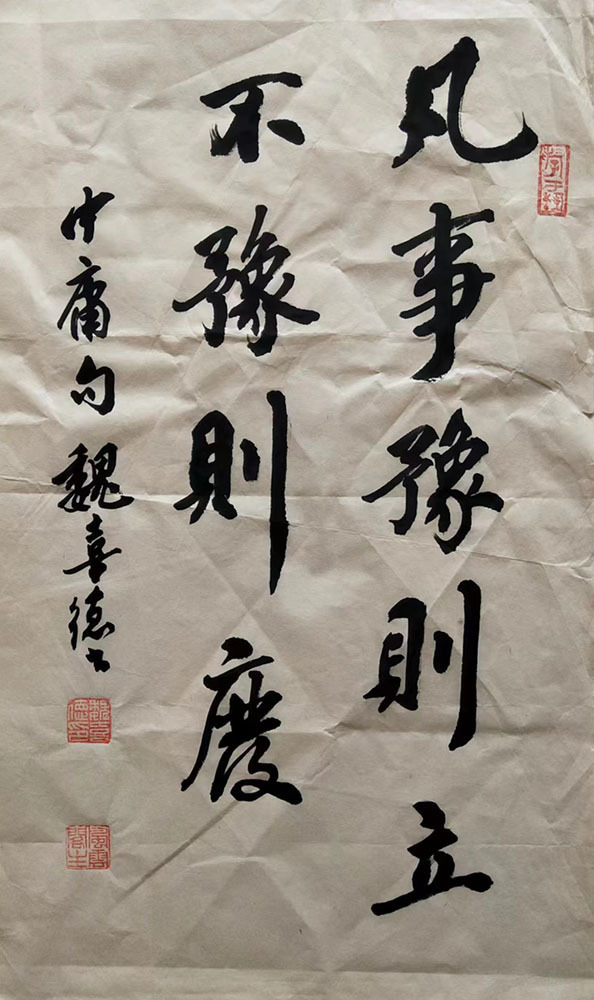 凡事豫則立
不豫則廢
中庸句 魏喜德书